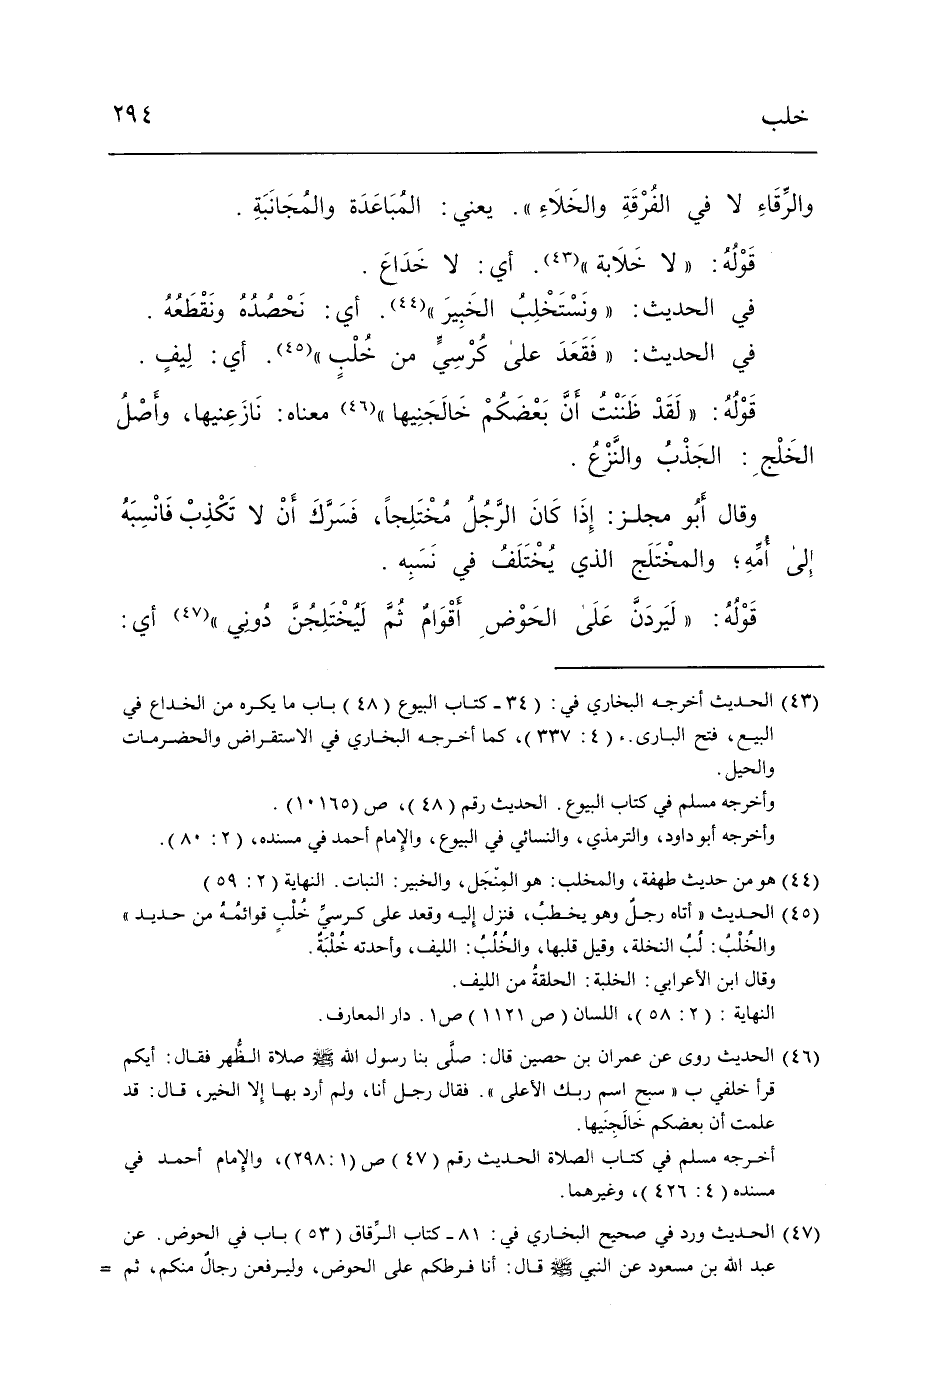 خلب ٢٩٤
والرِّقَاءِ لا في الفُرْقَةِ والخَلَاءِ » . يعني : المُبَاعَدَة والمُجَانَبَةِ .
قَوْلُهُ : « لا خَلَابة »(٤٣) . أي : لا خَدَاعَ .
في الحديث : « ونَسْتَخْلِبُ الخَبِيرَ »(٤٤) . أي : نَحْصُدُهُ ونَقْطَعُهُ .
في الحديث : « فَقَعَدَ علىٰ كُرْسِيٍّ من خُلْبٍ »(٤٥) . أي : لِيفٍ .
قَوْلُهُ : « لَقَدْ ظَنَنْتُ أَنَّ بَعْضَكُمْ خَالَجَنِيها »(٤٦) معناه : نَازَعِنيها ، وأَصْلُ
الخَلْجِ : الجَذْبُ والنَّزْعُ .
وقال أَبُو مجلـز : إِذَا كَانَ الرَّجُلُ مُخْتَلِجاً ، فَسَرَّكَ أَنْ لا تَكْذِبْ فَانْسِبَهُ
إِلىٰ أُمِّهِ ؛ والمخْتَلَج الذي يُخْتَلَفُ في نَسَبِه .
قَوْلُهُ : « لَيَردَنَّ عَلَىٰ الحَوْضِ أَقْوَامٌ ثُمَّ لَيُخْتَلِجُنَّ دُونِي »(٤٧) أي :
(٤٣) الحـديث أخرجـه البخاري في : ( ٣٤ ـ كتـاب البيوع ( ٤٨ ) بـاب ما يكـره من الخـداع في
البيـع ، فتح البـارى . ( ٤ : ٣٣٧ ) ، كما أخـرجـه البخـاري في الاستقـراض والحضـرمـات
والحيل .
وأخرجه مسلم في كتاب البيوع . الحديث رقم ( ٤٨ ) ، ص (١٠١٦٥) .
وأخرجه أبو داود ، والترمذي ، والنسائي في البيوع ، والإمام أحمد في مسنده ، ( ٢ : ٨٠ ) .
(٤٤) هو من حديث طهفة ، والمخلب : هو المِنْجَل ، والخبير : النبات . النهاية ( ٢ : ٥٩ )
(٤٥) الحـديث « أتاه رجـلٌ وهو يخـطبُ ، فنزل إليـه وقعد على كـرسيِّ خُلْبٍ قوائمُـهُ من حـديـد »
والخُلْبُ : لُبُ النخلة ، وقيل قلبها ، والخُلُبُ : الليف ، وأحدته خُلْبَةٌ .
وقال ابن الأعرابي : الخلبة : الحلقةُ من الليف .
النهاية : ( ٢ : ٥٨ ) ، اللسان ( ص ١١٢١ ) ص١ . دار المعارف .
(٤٦) الحديث روى عن عمران بن حصين قال : صلَّى بنا رسول الله ﷺ صلاة الـظُّهر فقـال : أيكم
قرأ خلفي ب « سبح اسم ربـك الأعلى » . فقال رجـل أنا ، ولم أرد بهـا إلا الخير ، قـال : قد
علمت أن بعضكم خَالَجِنَيها .
أخـرجه مسلم في كتـاب الصلاة الحـديث رقم ( ٤٧ ) ص (١ : ٢٩٨) ، والإمام أحمـد في
مسنده ( ٤ : ٤٢٦ ) ، وغيرهما .
(٤٧) الحـديث ورد في صحيح البخـاري في : ٨١ ـ كتاب الرِّقاق ( ٥٣ ) بـاب في الحوض . عن
عبد الله بن مسعود عن النبي ﷺ قـال : أنا فـرطكم على الحوض ، وليـرفعن رجالٌ منكم ، ثم =